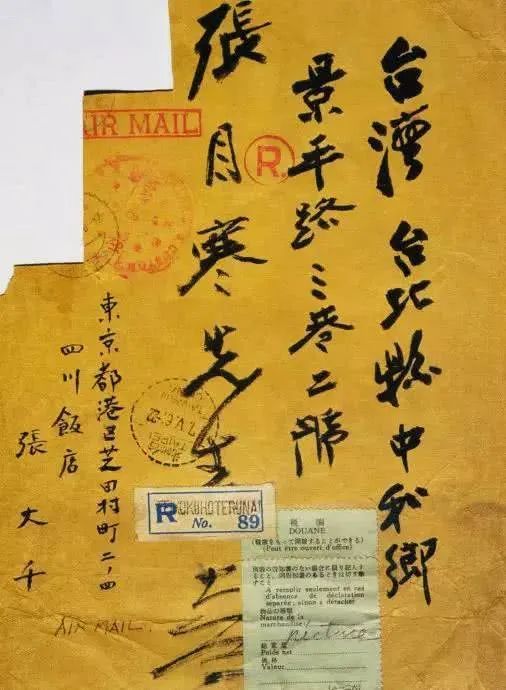 台灣台北縣中和鄉
景平路三巷二號
張目寒先生
東京都港区芝田村町二ノ四
四川飯店
張大千
AIR MAIL
R.
R
No. 89
税関
DOUANE
(Peut être ouvert d'office)
A remplir seulement en cas
d'absence de déclaration
séparée, sinon à détacher
Nature de la
marchandise
picture
Poids net
Valeur
AIR MAIL.